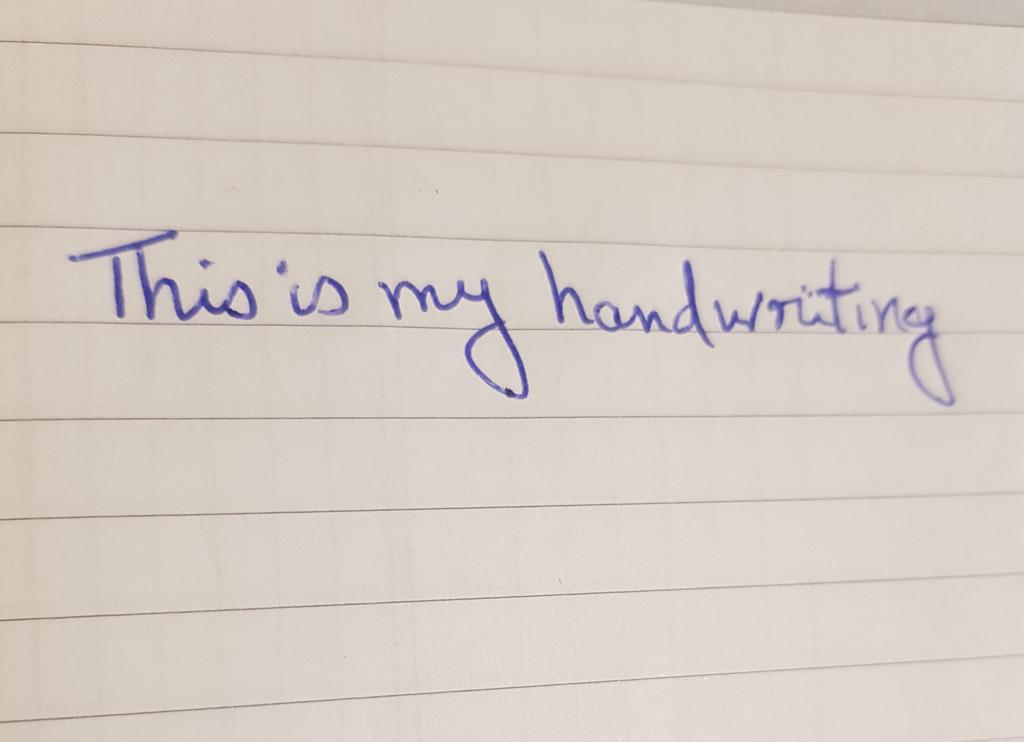 This is my handwriting